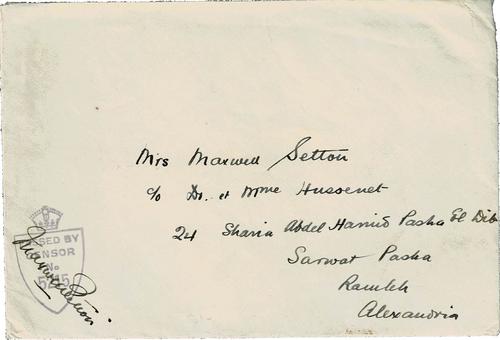 Mrs Maxwell Setton
c/o Dr. et Mme Hussenet
24 Sharia Abdel Hamid Pasha El Dib
Sarwat Pasha
Ramleh
Alexandria
PASSED BY
CENSOR
No
Maxwell Setton